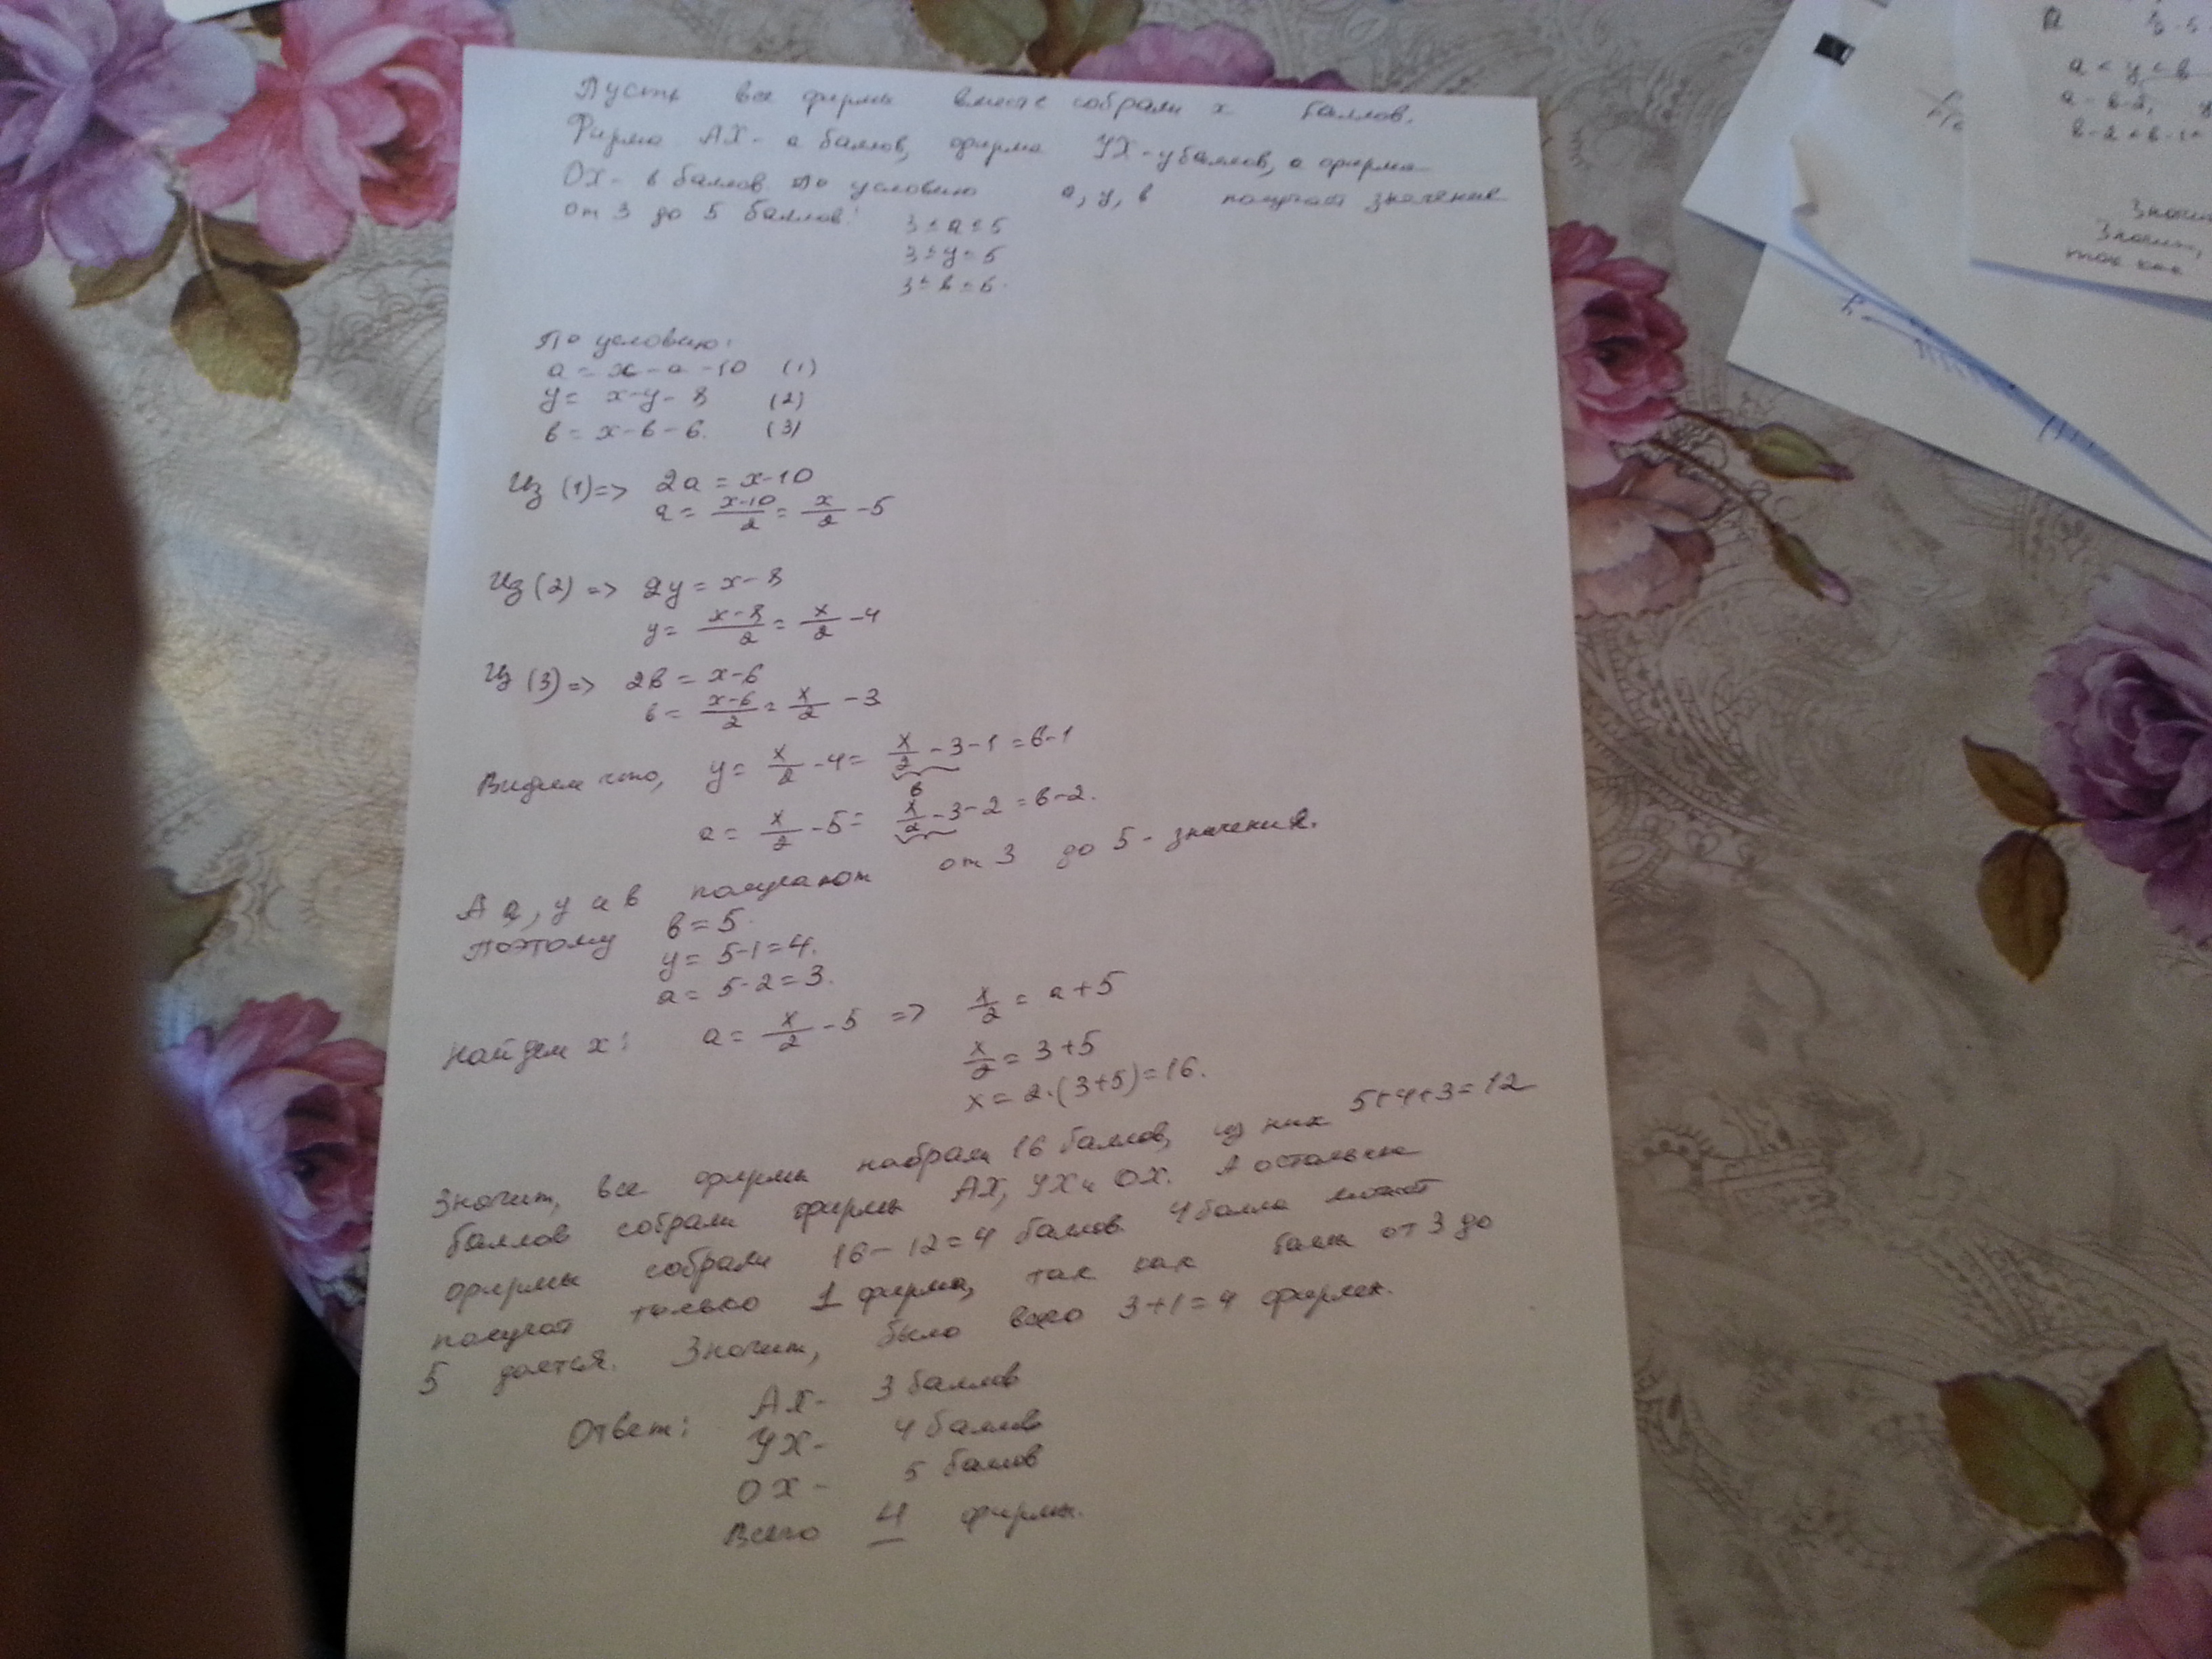 Пусть все фирмы вместе собрали x баллов.
Фирма АХ - а баллов, фирма УХ - у баллов, а фирма
ОХ - в баллов. По условию а, у, в получают значение
от 3 до 5 баллов: 3 ≤ a ≤ 5
3 ≤ y ≤ 5
3 ≤ в ≤ 5.
По условию:
a = x - a - 10 (1)
y = x - y - 8 (2)
в = x - в - 6. (3)
Из (1) => 2a = x - 10
a = (x-10)/2 = x/2 - 5
Из (2) => 2y = x - 8
y = (x-8)/2 = x/2 - 4
Из (3) => 2в = x - 6
в = (x-6)/2 = x/2 - 3
Видим что, y = x/2 - 4 = x/2 - 3 - 1 = в - 1
в
a = x/2 - 5 = x/2 - 3 - 2 = в - 2.
А а, у и в получают от 3 до 5 - значения.
Поэтому в = 5.
y = 5 - 1 = 4.
a = 5 - 2 = 3.
Найдем x: a = x/2 - 5 => x/2 = a + 5
x/2 = 3 + 5
x = 2·(3+5) = 16.
Значит, все фирмы набрали 16 баллов, из них 5+4+3=12
баллов собрали фирмы АХ, УХ и ОХ. А остальные
фирмы собрали 16 - 12 = 4 баллов. 4 балла может
получат только 1 фирма, так как балл от 3 до
5 дается. Значит, было всего 3+1=4 фирмы.
Ответ: АХ - 3 баллов
УХ - 4 баллов
ОХ - 5 баллов
Всего 4 фирмы.
a < y < в
Значит,
так как